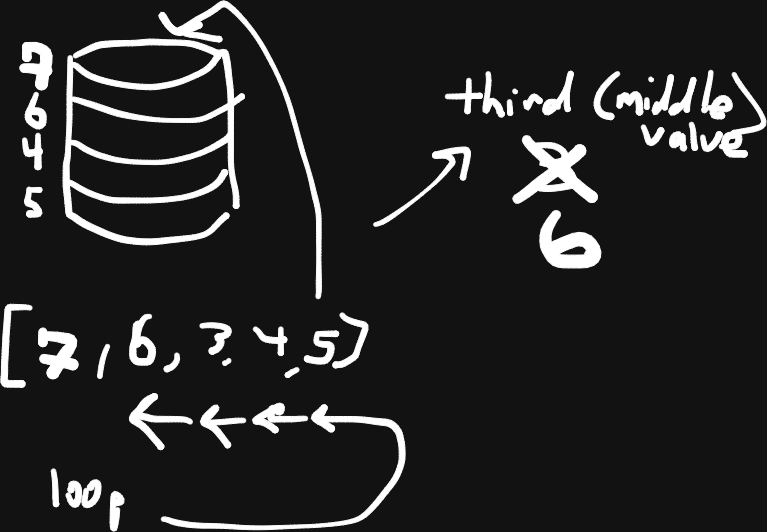 7
6
4
5
third (middle)
value
6
[7, 6, 3, 4, 5]
loop